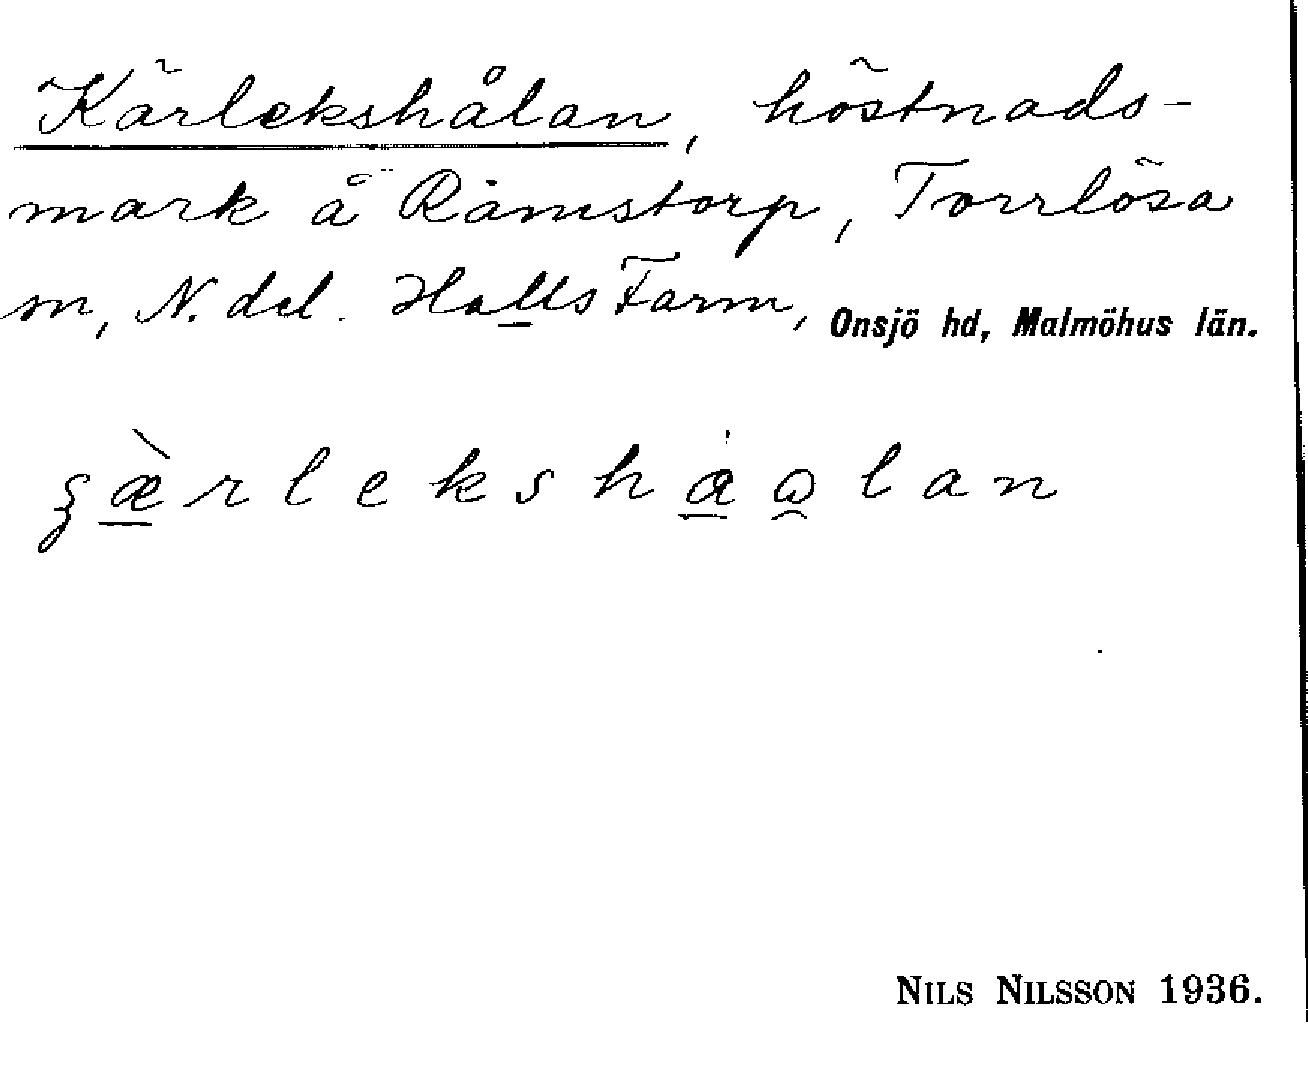 Kärlekshålan, höstnads-
mark å Rämstorp, Torrlösa
sn, N. del. Halls Farm, Onsjö hd, Malmöhus län.
ʒæ̀rlekshaɷlan
NILS NILSSON 1936.